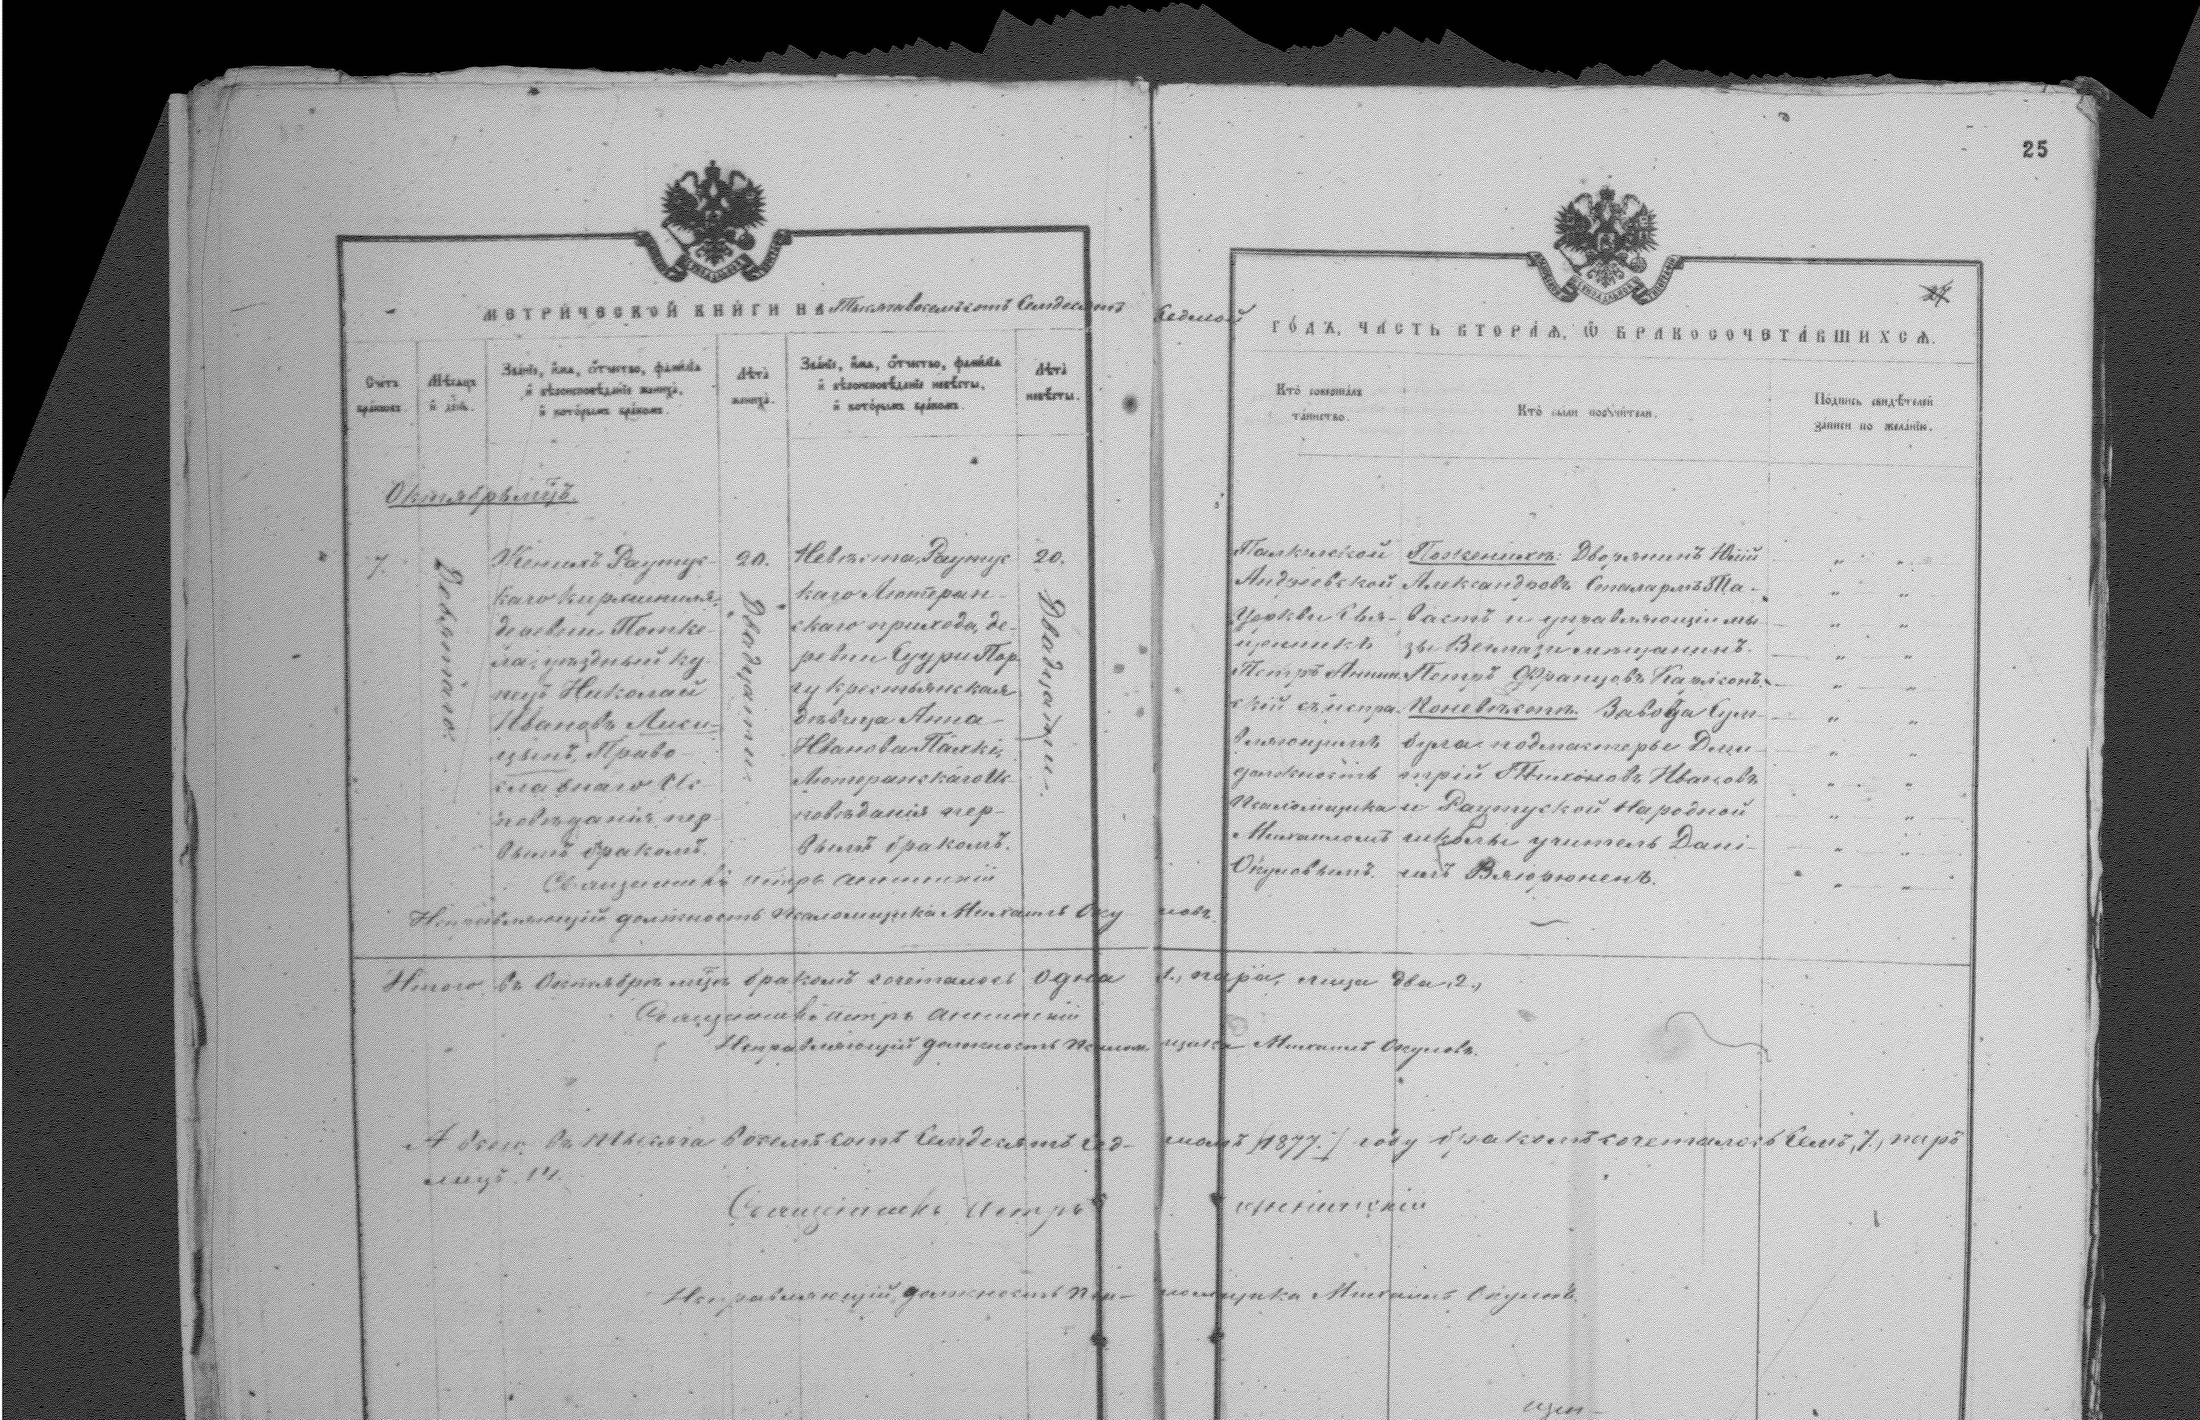 25
27
МЕТРИЧЕСКОЙ КНИГИ НА Тысяча восемьсотъ Семдесятъ
Седмой ГОДЪ, ЧАСТЬ ВТОРАЯ, Ѡ БРАКОСОЧЕТАВШИХСЯ.
Счетъ
браковъ.
Мѣсяцъ
и день.
Званіе, имя, отчество, фамилія
и вѣроисповѣданіе жениха,
и которымъ бракомъ.
Лѣта
жениха.
Званіе, имя, отчество, фамилія
и вѣроисповѣданіе невѣсты,
и которымъ бракомъ.
Лѣта
невѣсты.
Кто совершалъ
таинство.
Кто были поручители.
Подпись свидѣтелей
записи по желанію.
Октябрь мцъ.
7.
Девятаго.
Женихъ Раутус-
каго Кирхшпиля,
деревни Потке-
ла, уѣздный ку-
пецъ Николай
Ивановъ Лиси-
цынъ, Право-
славнаго Ис-
повѣданія, пер-
вымъ бракомъ.
20.
Двадцати.
Невѣста, Раутус
каго Лютеран-
скаго прихода, де-
ревни Суури Пор-
ку крестьянская
дѣвица Анна
Иванова Пăхкi,
Лютеранскаго Ис
повѣданія пер-
вымъ бракомъ.
20.
Двадцати.
Палкельской
Андреевской
Церкви Свя-
щенникъ
Петръ Аннин
скій съ испра-
вляющимъ
должность
Псаломщика
Михаиломъ
Окуловымъ.
По женихѣ: Дворянинъ Юлій
Александровъ
и управляющій мы
зы мѣщанинъ
Петръ Францовъ
По невѣстѣ: Завода Сум-
була подмастерье Дми-
трій Тихоновъ Ивановъ
и Раутуской Народной
школы учитель Дані-
илъ Вяюрюненъ.
Священникъ Петръ Аннинскій
Исправляющій должность псаломщика Михаилъ Окуловъ.
Итого въ Октябрѣ мцѣ бракомъ сочеталось одна 1., пара, лица два, 2.,
Священникъ Петръ Аннинскій
Исправляющій должность псаломщика Михаилъ Окуловъ.
А всего въ тысяча восемьсотъ Семдесятъ седмомъ /1877./ году бракомъ сочеталось Семь, 7., паръ
лицъ. 14.
Священникъ Петръ Аннинскій
Исправляющій должность псаломщика Михаилъ Окуловъ.